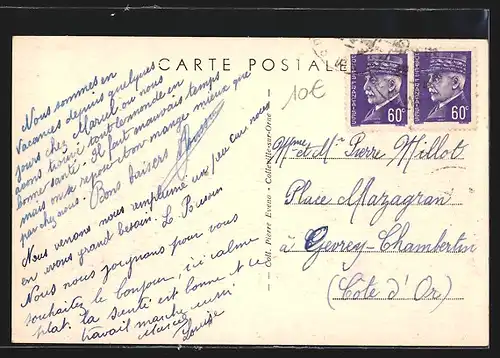 CARTE POSTALE
Nous sommes en
vacances depuis quelques
jours chez Marcel où nous
avons trouvé tout le monde en
bonne santé. Il fait mauvais temps
mais on se repose et on mange mieux que
par chez nous. Bons baisers
Nous venons nous remplumer un peu car nous
en avons grand besoin.
Nous nous joignons pour vous
souhaiter le bonjour, ici calme
plat. la santé est bonne et le
travail marche aussi
Marcel
Louise
Coll. Pierre Eveno - Collonges-sur-Orne
10€
60c
60c
Mme et Mr Pierre Millot
Place Mazagran
à Gevrey-Chambertin
(Côte d'Or)